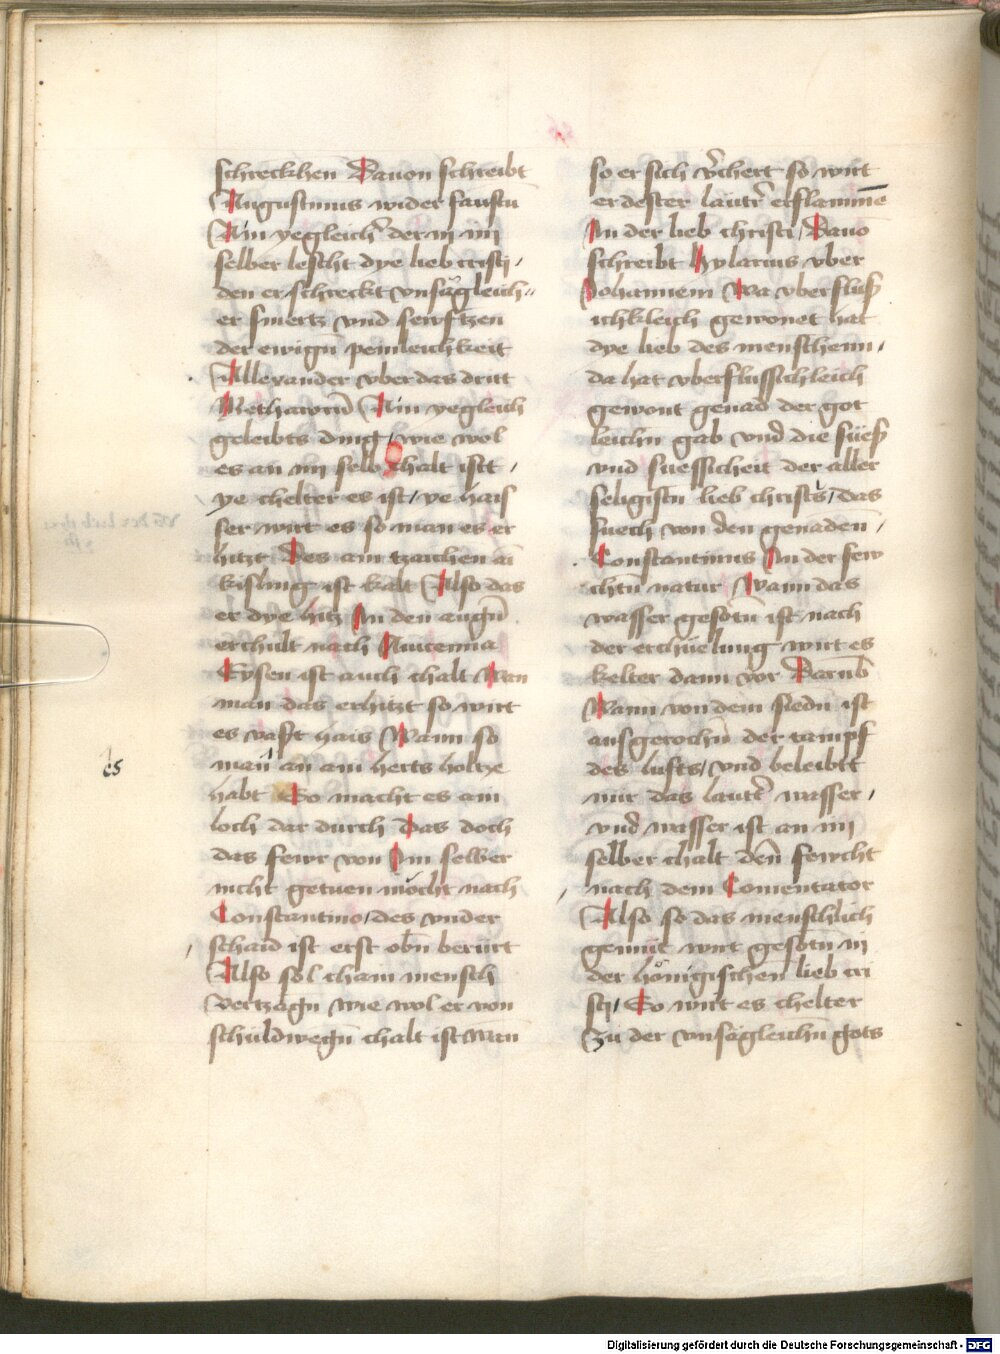 schreckhen Dauon schreibt
Augustinus wider faustū
Ain yegleichr̄ der in im
selber lescht dye lieb cristi /
den er schreckt vnsägleich
er smertz vnd sewftzen
der ewigñ peinleichkeit
Allexander vber das dritt
Methawrū Ain yegleich
geleibts ding / wie wol
es an im selb chalt istt /
ye chelter es ist / ye hais
ser wirt es so man es er
hitzt Des ain tzaichen ai
kisling ist kalt Also das
er dye hitz In den augñ
erchult nach Auicenna
Eysen ist auch chalt Wan
man das erhitzt so wirt
es vast hais Wann so
es
man an ain herts holtze
habt So macht es ain
loch dar durch Das doch
das fewr von Im selber
nicht getuen möcht nach
Constantino / des vnder
schaid ist erst obñ berürt
Also sol chain mensch
vertzagñ wie wol er von
schuldwegñ chalt ist wan
so er sich v̄chert so wirt
er dester lautr̄ erflammē
In der lieb christi / Dauō
schreibt Hylarius vber
Johannem Wa vberfluß
ichkleich gewonet hat
dye lieb des menschenn /
da hat vberflussichleich
gewont genad der got
leichñ gab vnd die süeß
vnd suessicheit der aller
seligistñ lieb christi / das
suech von den genadeñ /
Constantinus In der sew
chtñ natur Wann das
wasser gesotñ ist nach
der erchüelung wirt es
kelter dann vor Darūb
Wann von dem siedñ ist
ausgerochñ der tampf
des lufts / vnd beleibtt
nur das lautr̄ wasser /
vnd wasser ist an im
selber chalt deñ fewcht
nach dem Comentator
Also so das menschlich
gemüt wirt gesotñ in
der hönigischen lieb cri
sti / So wirt es chelter
Zu der vnsägleichñ gots